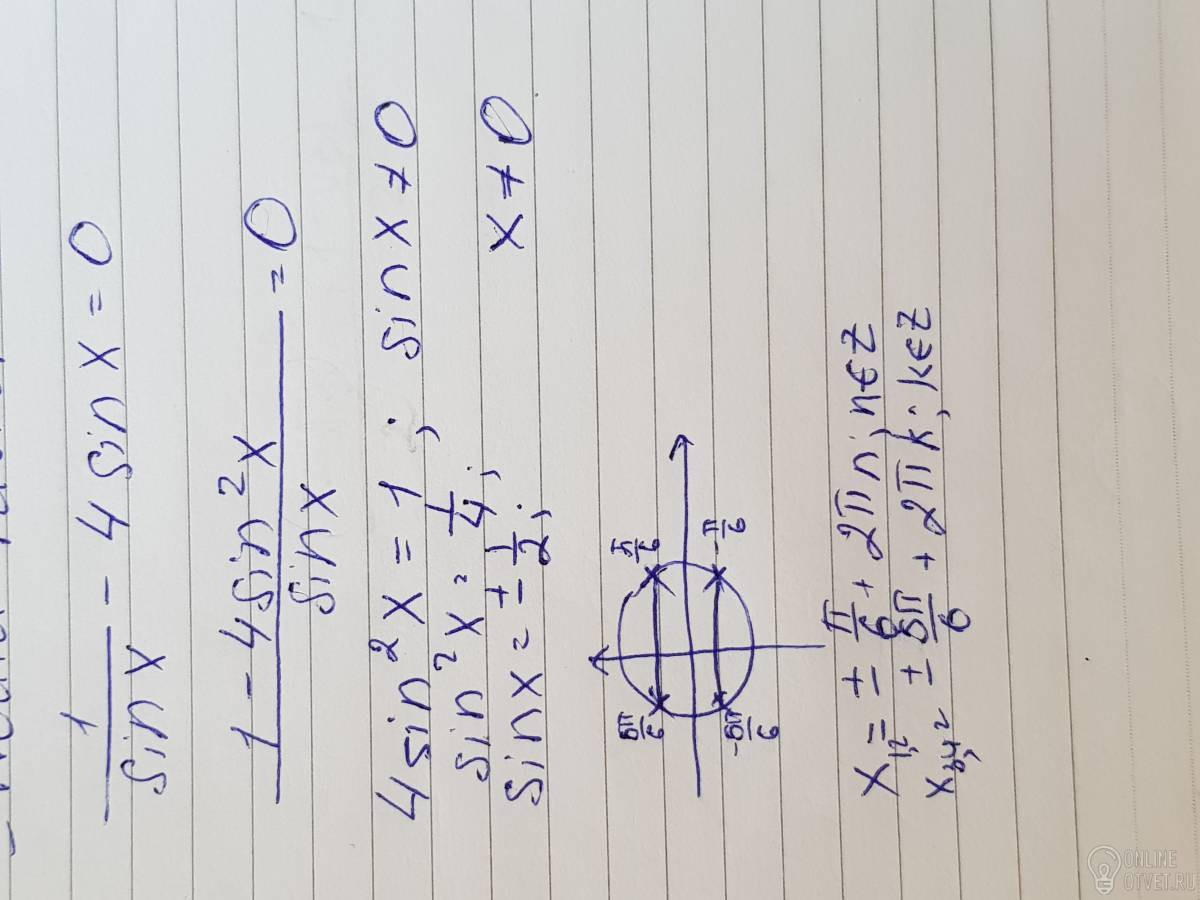 1/sin x - 4 sin x = 0
(1 - 4 sin²x)/sin x = 0
4 sin²x = 1; sin x ≠ 0
sin²x = 1/4; x ≠ 0
sin x = ± 1/2;
5π/6 π/6
-5π/6 -π/6
x₁,₂ = ± π/6 + 2πn; n∈Z
x₃,₄ = ± 5π/6 + 2πk; k∈Z
ONLINE
OTVET.RU